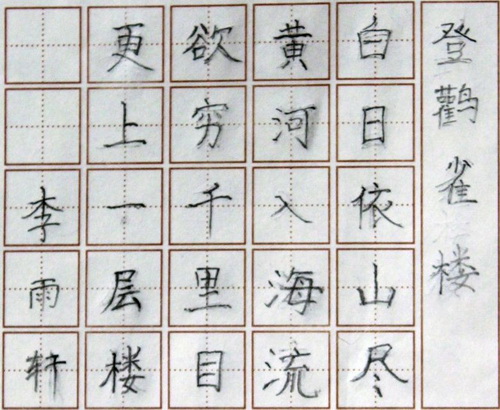 登鹳雀楼
白日依山尽
黄河入海流
欲穷千里目
更上一层楼
李雨轩